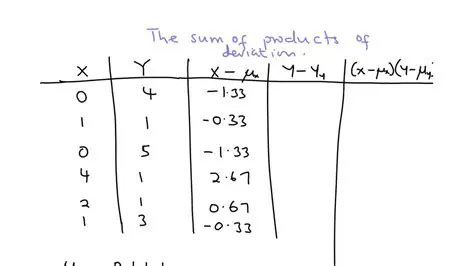 The sum of products of
deviation.
X Y X - μx Y - Yy (x-μx)(Y-μy)
0 4 -1.33
1 1 -0.33
0 5 -1.33
4 1 2.67
2 1 0.67
1 3 -0.33